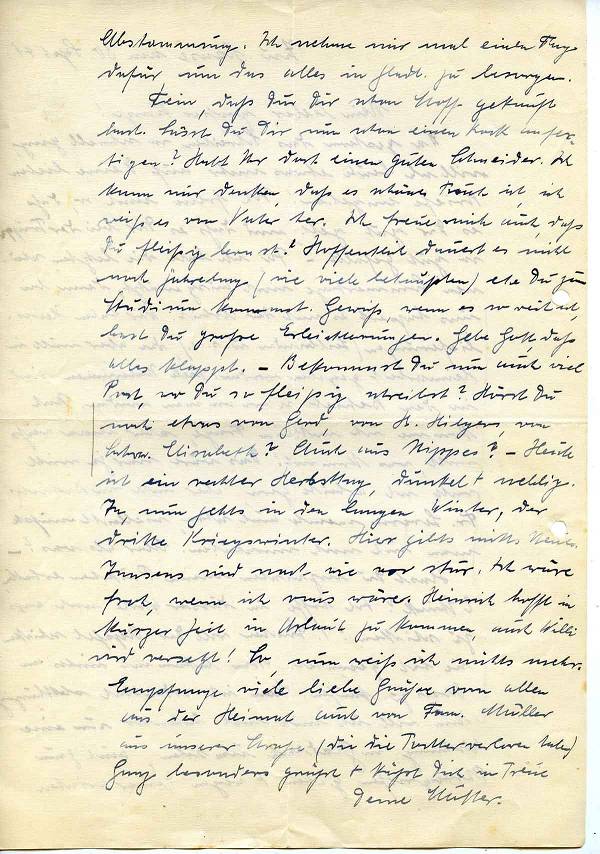 Abstammung. Ich nehme mir mal einen Tag
dafür um das alles in Gladb. zu besorgen.
Fein, daß Du Dir schon Stoff gekauft
hast. Läßt Du Dir nun schon einen Rock anfer-
tigen? Habt Ihr dort einen guten Schneider. Ich
kann mir denken, daß es schönes Tuch ist, ich
weiß es von Vater her. Ich freue mich auch, daß
Du fleißig lernst! Hoffentlich dauert es nicht
noch jahrelang (wie viele behaupten) ehe Du zum
Studium kommst. Gewiß, wenn es so weit ist,
hast Du große Erleichterungen. Gebe Gott, daß
alles klappt. – Bekommst Du nun auch viel
Post, wo Du so fleißig schreibst? Hörst Du
noch etwas von Gerd, von H. Hilgers, von
Schw. Elisabeth? Auch aus Nippes? – Heute
ist ein rechter Herbsttag, dunkel + neblig.
Ja, nun gehts in den langen Winter, der
dritte Kriegswinter. Hier gibts nichts Neues.
Jansens sind nach wie vor stur. Ich wäre
froh, wenn ich raus wäre. Heinrich hofft in
kurzer Zeit in Urlaub zu kommen, auch Willi
wird versetzt! So, nun weiß ich nichts mehr.
Empfange viele liebe Grüße von allen
aus der Heimat auch von Fam. Müller
aus unserer Straße (die die Tochter verloren haben)
Ganz besonders grüßt + küßt Dich in Treue
Deine Mutter.